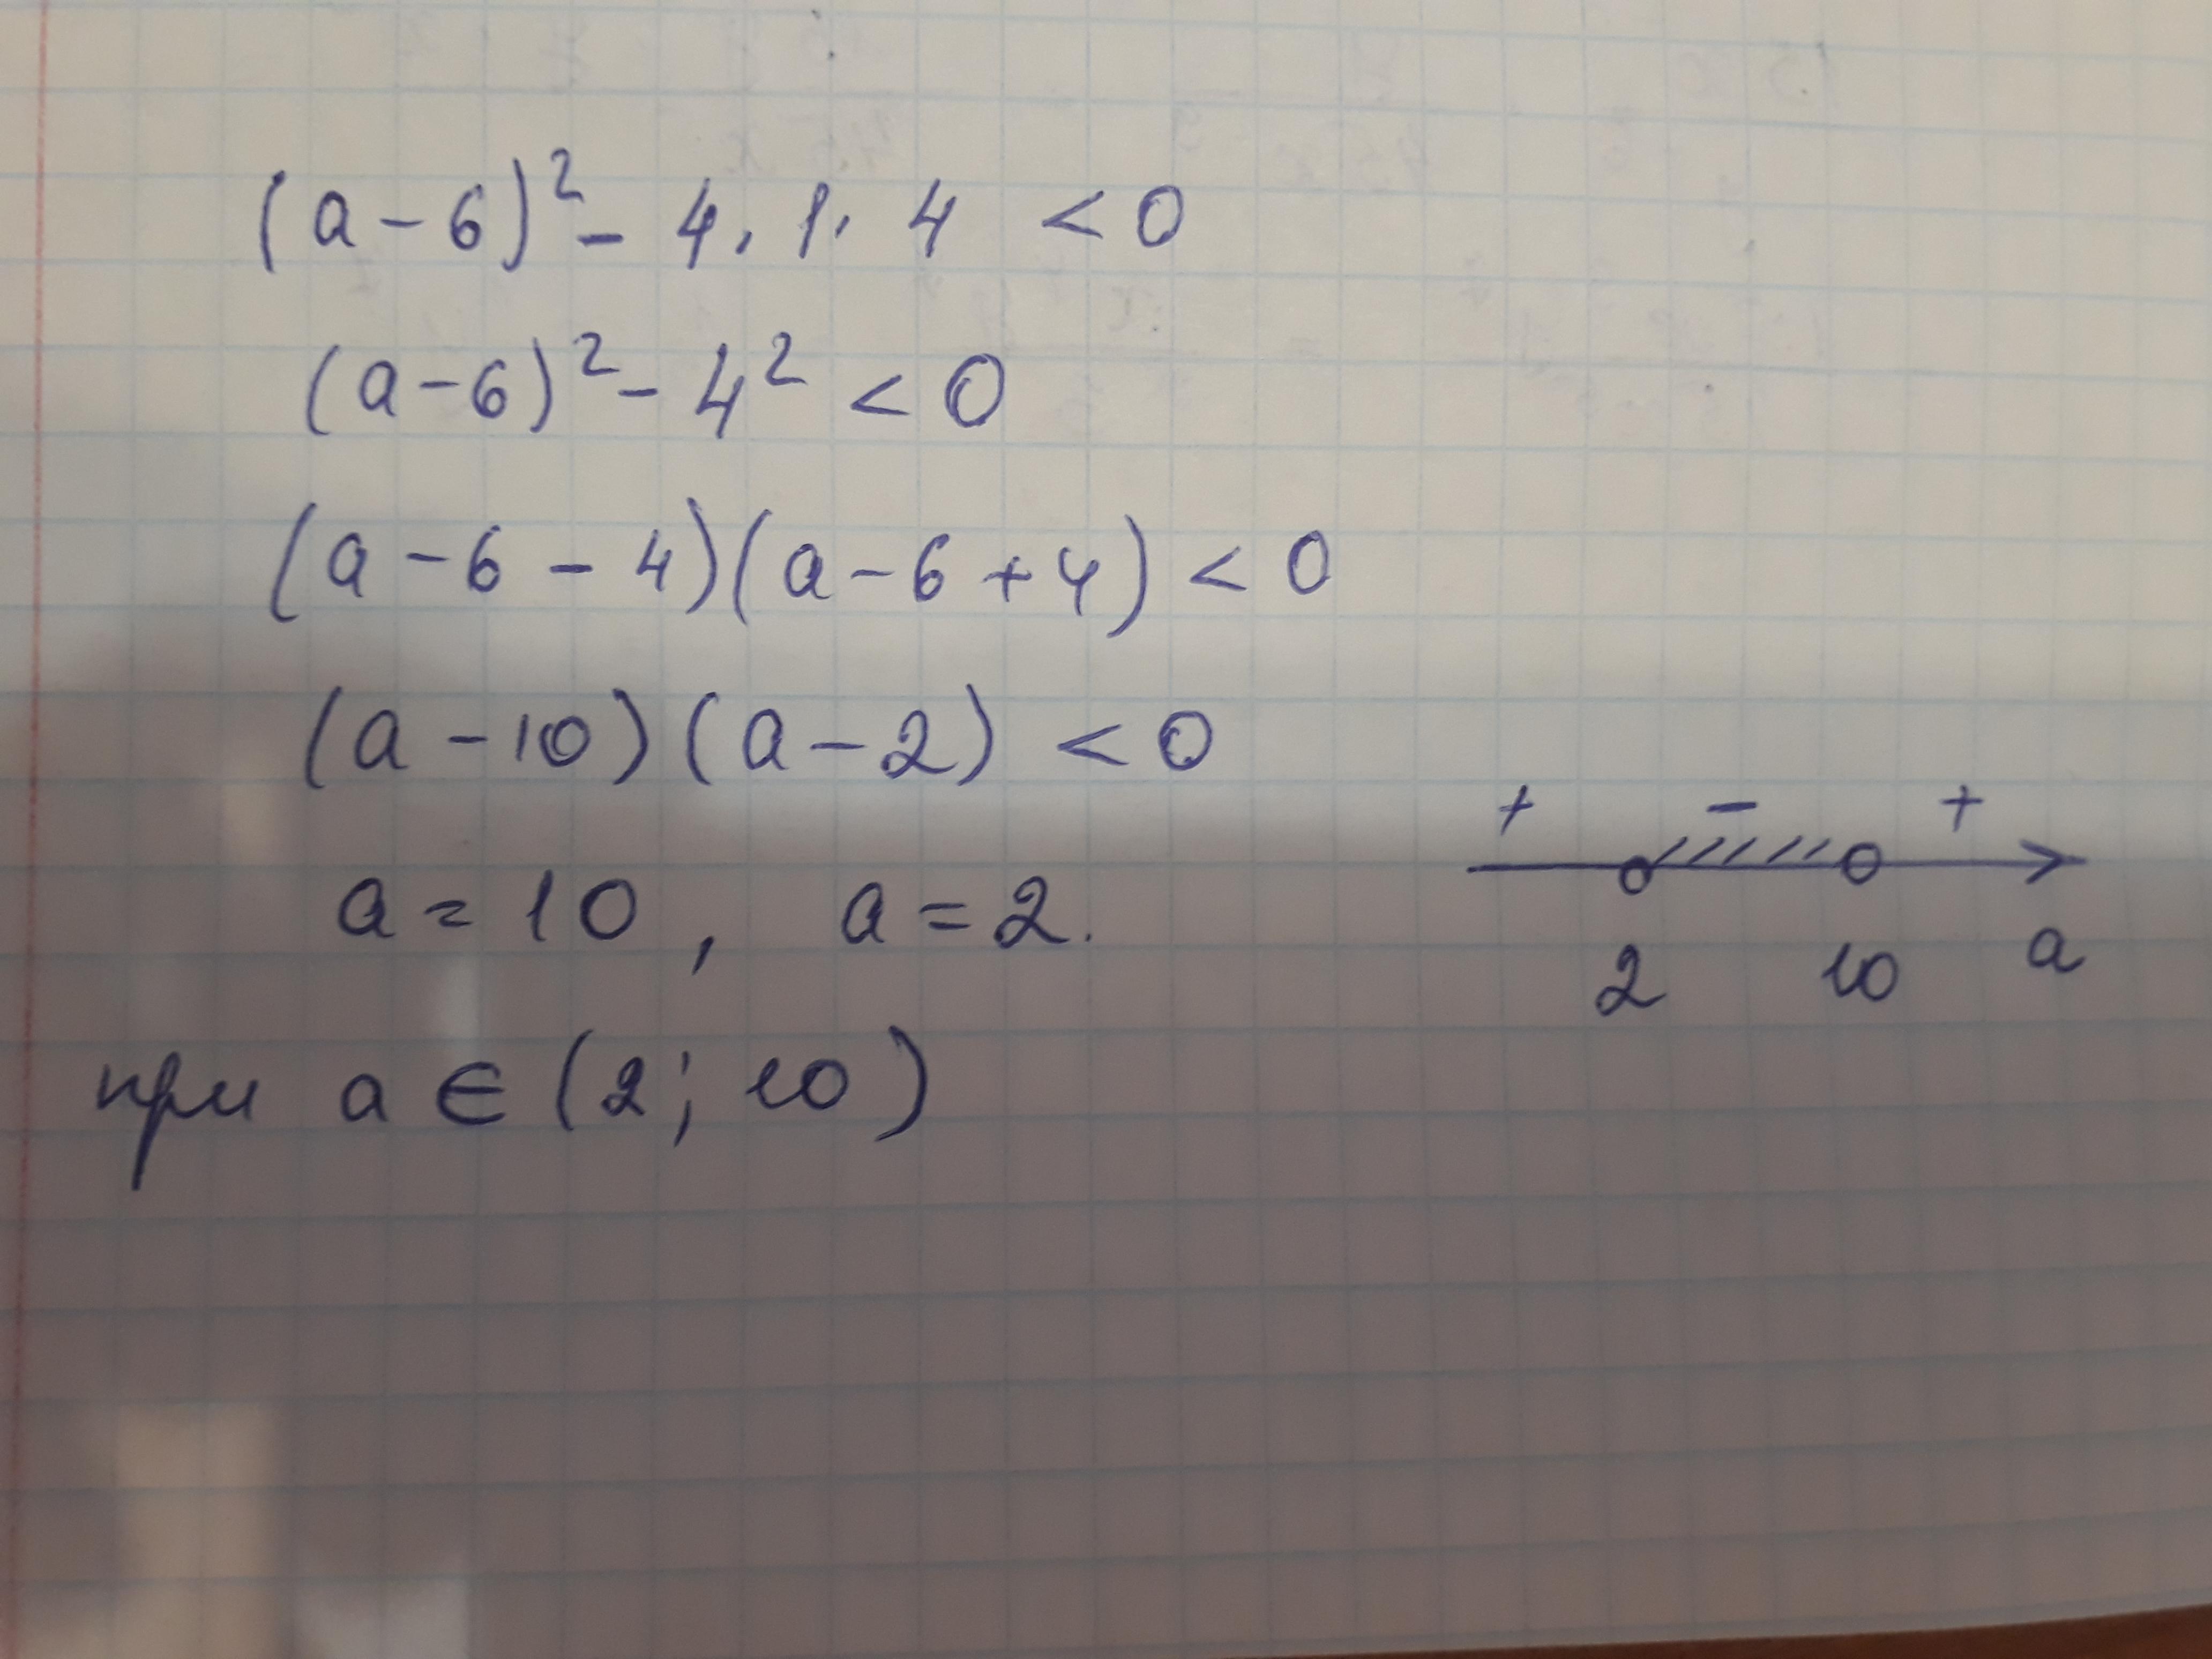 (a-6)² - 4·1·4 < 0
(a-6)² - 4² < 0
(a-6-4)(a-6+4) < 0
(a-10)(a-2) < 0
+ - +
a = 10, a = 2.
2 10 a
при a ∈ (2; 10)